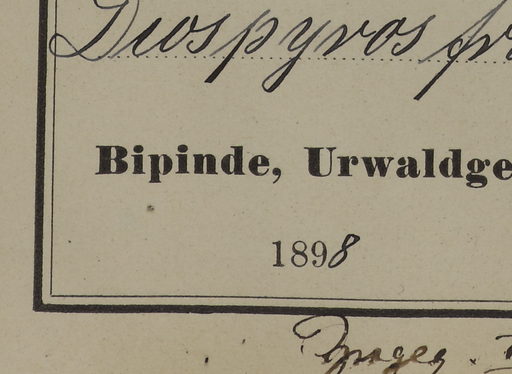 Diospyros fr
Bipinde, Urwaldge
1898